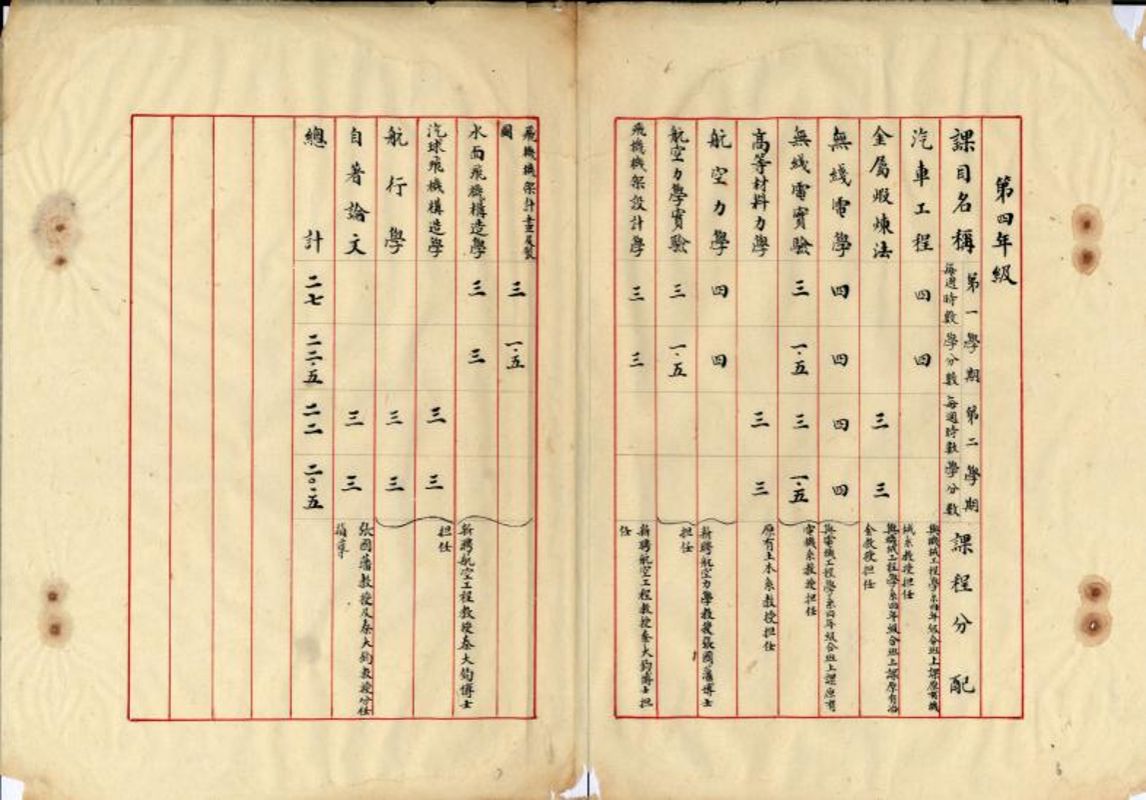 第四年級
課目名稱 第一學期 每週時數 學分數 第二學期 每週時數 學分數 課程分配
汽車工程 四 四 與機械工程學系四年級合班上課原有機械系教授担任
金屬煅煉法 三 三 與機械工程學系四年級合班上課原有冶金教授担任
無綫電學 四 四 四 四 與電機工程學系四年級合班上課原有電機系教授担任
無綫電實驗 三 一·五 三 一·五
高等材料力學 三 三 原有土木系教授担任
航空力學 四 四 新聘航空力學教授張國藩博士担任
航空力學實驗 三 一·五
飛機機架設計學 三 三 新聘航空工程教授秦大鈞博士担任
飛機機架計畫及製圖 三 一·五
水面飛機構造學 三 三 新聘航空工程教授秦大鈞博士担任
汽球飛機構造學 三 三
航行學 三 三
自著論文 三 三 張國藩教授及秦大鈞教授分任指導
總計 二七 二二·五 二二 二〇·五